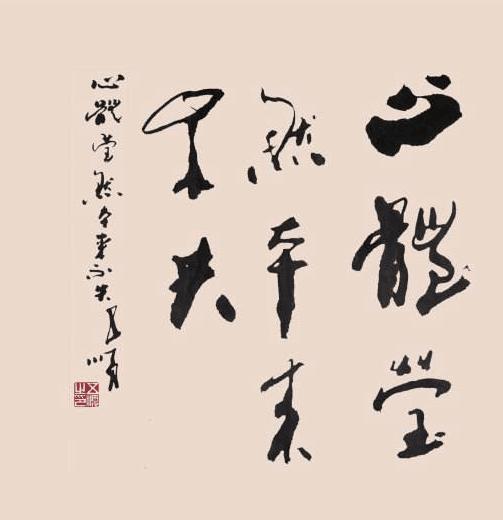 心體瑩
然本來
不失
心體瑩然本來不失